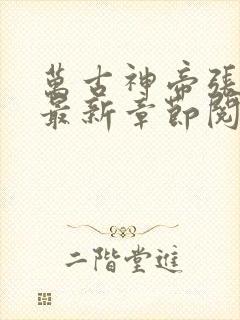 萬古神帝張
最新章節閱
二階堂進